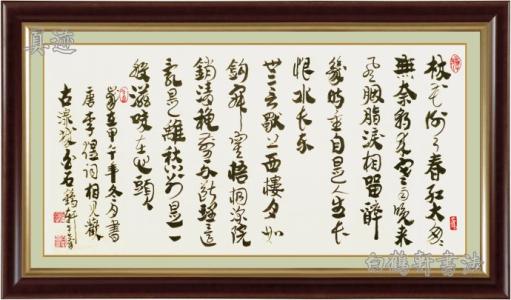 真迹
林花谢了春红太匆匆
無奈朝来寒雨晚来
风胭脂泪相留醉
幾时重自是人生长
恨水长东
無言独上西楼月如
钩寂寞梧桐深院
锁清秋剪不断理还
乱是離愁别是一
般滋味在心頭
岁在甲午年冬月書
唐李煜词相见歡
白鹤轩书法